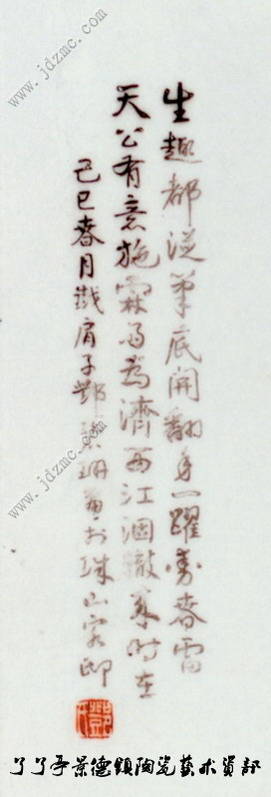 生趣都從筆底開翻身一躍春雷
天公有意施霖雨為濟西江涸轍來時在
己巳春月戢肩子鄧碧珊畫於珠山客邸
鄧
丫丫亭景德镇陶瓷藝术資部
www.jdzmc.com
www.jdzmc.com
www.jdzmc.com